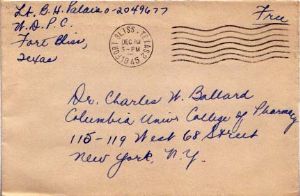 Lt. B. H. Palaizo O-2049677
W.D.P.C.
Fort Bliss,
Texas
Free
FORT BLISS, TEXAS
DEC
5-PM
1945
Dr. Charles W. Ballard
Columbia Univ. College of Pharmacy
115-119 West 68 Street
New York, N.Y.